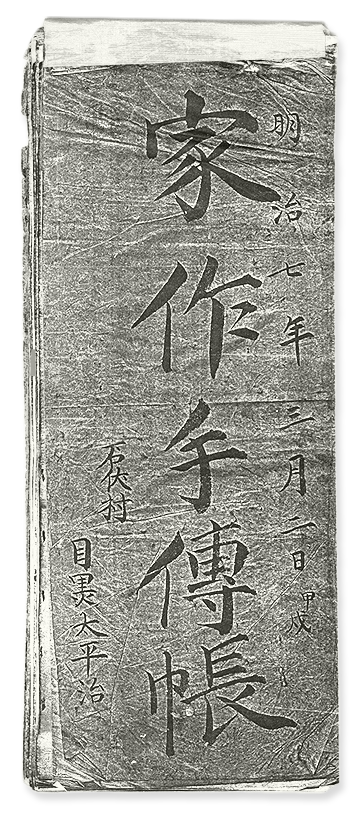 明治七年三月二日 甲戌
家作手傳帳
石伏村
目黒大平治